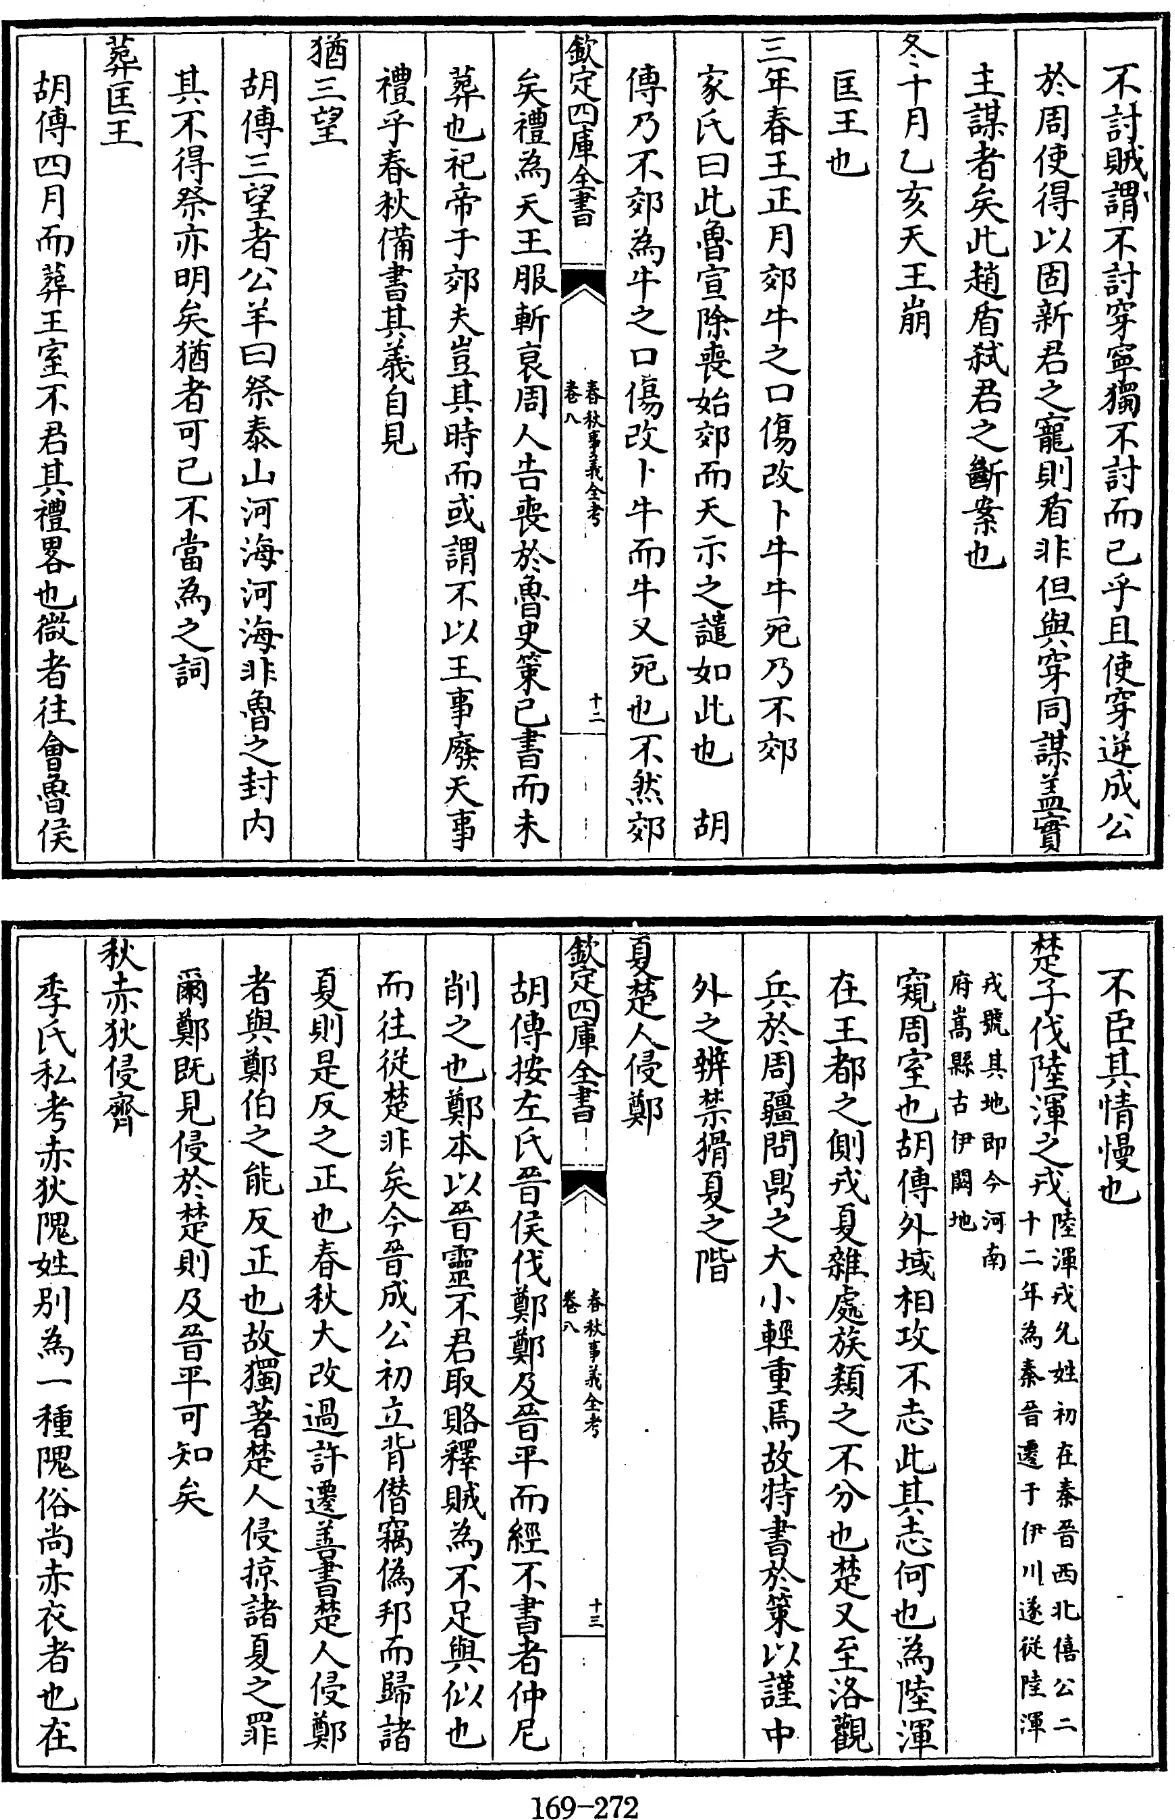 不討賊謂不討穿寧獨不討而已乎且使穿逆成公
於周使得以固新君之寵則盾非但與穿同謀盖實
主謀者矣此趙盾弑君之斷案也
冬十月乙亥天王崩
匡王也
三年春王正月郊牛之口傷改卜牛牛死乃不郊
家氏曰此魯宣除喪始郊而天示之譴如此也　胡
傳乃不郊為牛之口傷改卜牛而牛又死也不然郊
欽定四庫全書
春秋事義全考
卷八
十二
矣禮為天王服斬衰周人告喪於魯史策已書而未
葬也祀帝于郊夫豈其時而或謂不以王事廢天事
禮乎春秋備書其義自見
猶三望
胡傳三望者公羊曰祭泰山河海河海非魯之封内
其不得祭亦明矣猶者可已不當為之詞
葬匡王
胡傳四月而葬王室不君其禮畧也微者往會魯侯
不臣其情慢也
楚子伐陸渾之戎陸渾戎允姓初在秦晉西北僖公二
十二年為秦晉遷于伊川遂從陸渾
戎號其地即今河南
府嵩縣古伊闕地
窺周室也胡傳外域相攻不志此其志何也為陸渾
在王都之側戎夏雜處族類之不分也楚又至洛觀
兵於周疆問鼎之大小輕重焉故特書於策以謹中
外之辨禁猾夏之階
夏楚人侵鄭
欽定四庫全書
春秋事義全考
卷八
十三
胡傳按左氏晉侯伐鄭鄭及晉平而經不書者仲尼
削之也鄭本以晉靈不君取賂釋賊為不足與似也
而往從楚非矣今晉成公初立背僭竊偽邦而歸諸
夏則是反之正也春秋大改過許遷善書楚人侵鄭
者與鄭伯之能反正也故獨著楚人侵掠諸夏之罪
爾鄭既見侵於楚則及晉平可知矣
秋赤狄侵齊
季氏私考赤狄隗姓别為一種隗俗尚赤衣者也在
169-272